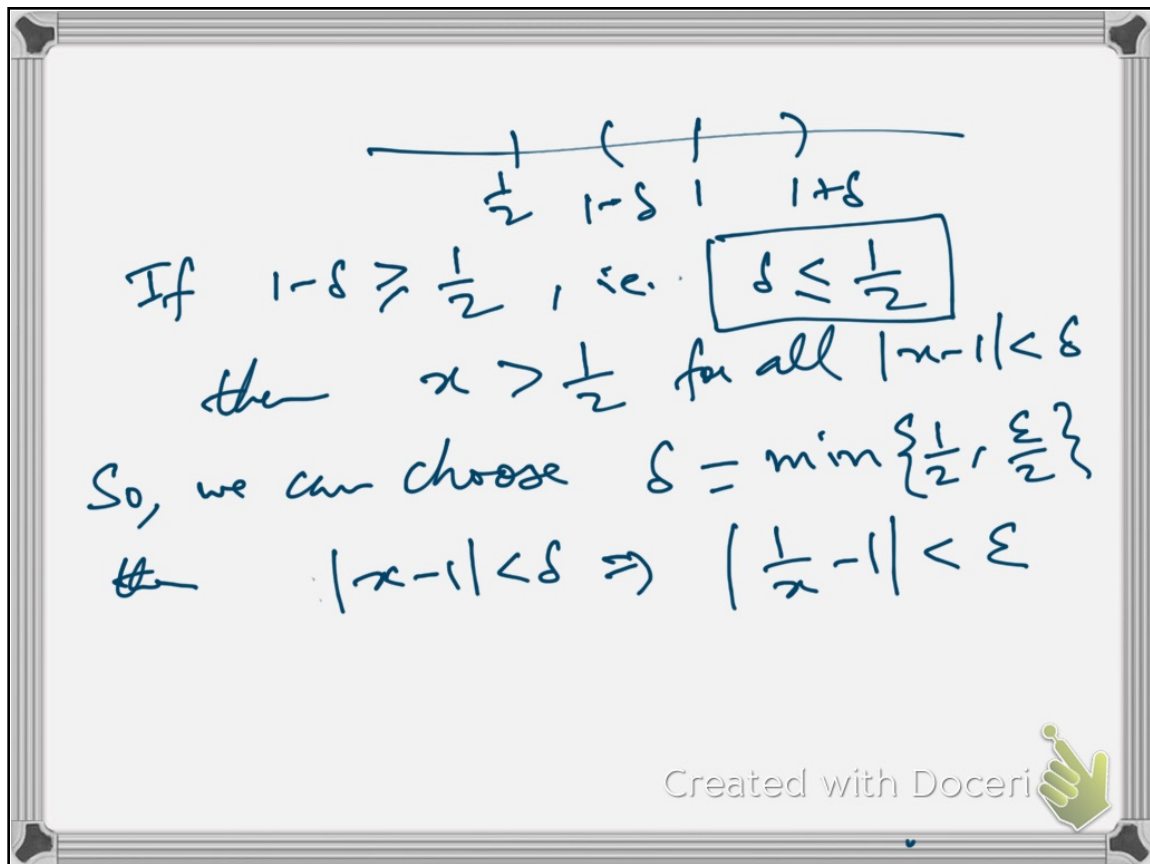 1/2 1-δ 1 1+δ
If 1-δ ≥ 1/2, i.e. δ ≤ 1/2
then x > 1/2 for all |x-1| < δ
So, we can choose δ = min{1/2, ε/2}
then |x-1| < δ ⇒ |1/x - 1| < ε
Created with Doceri